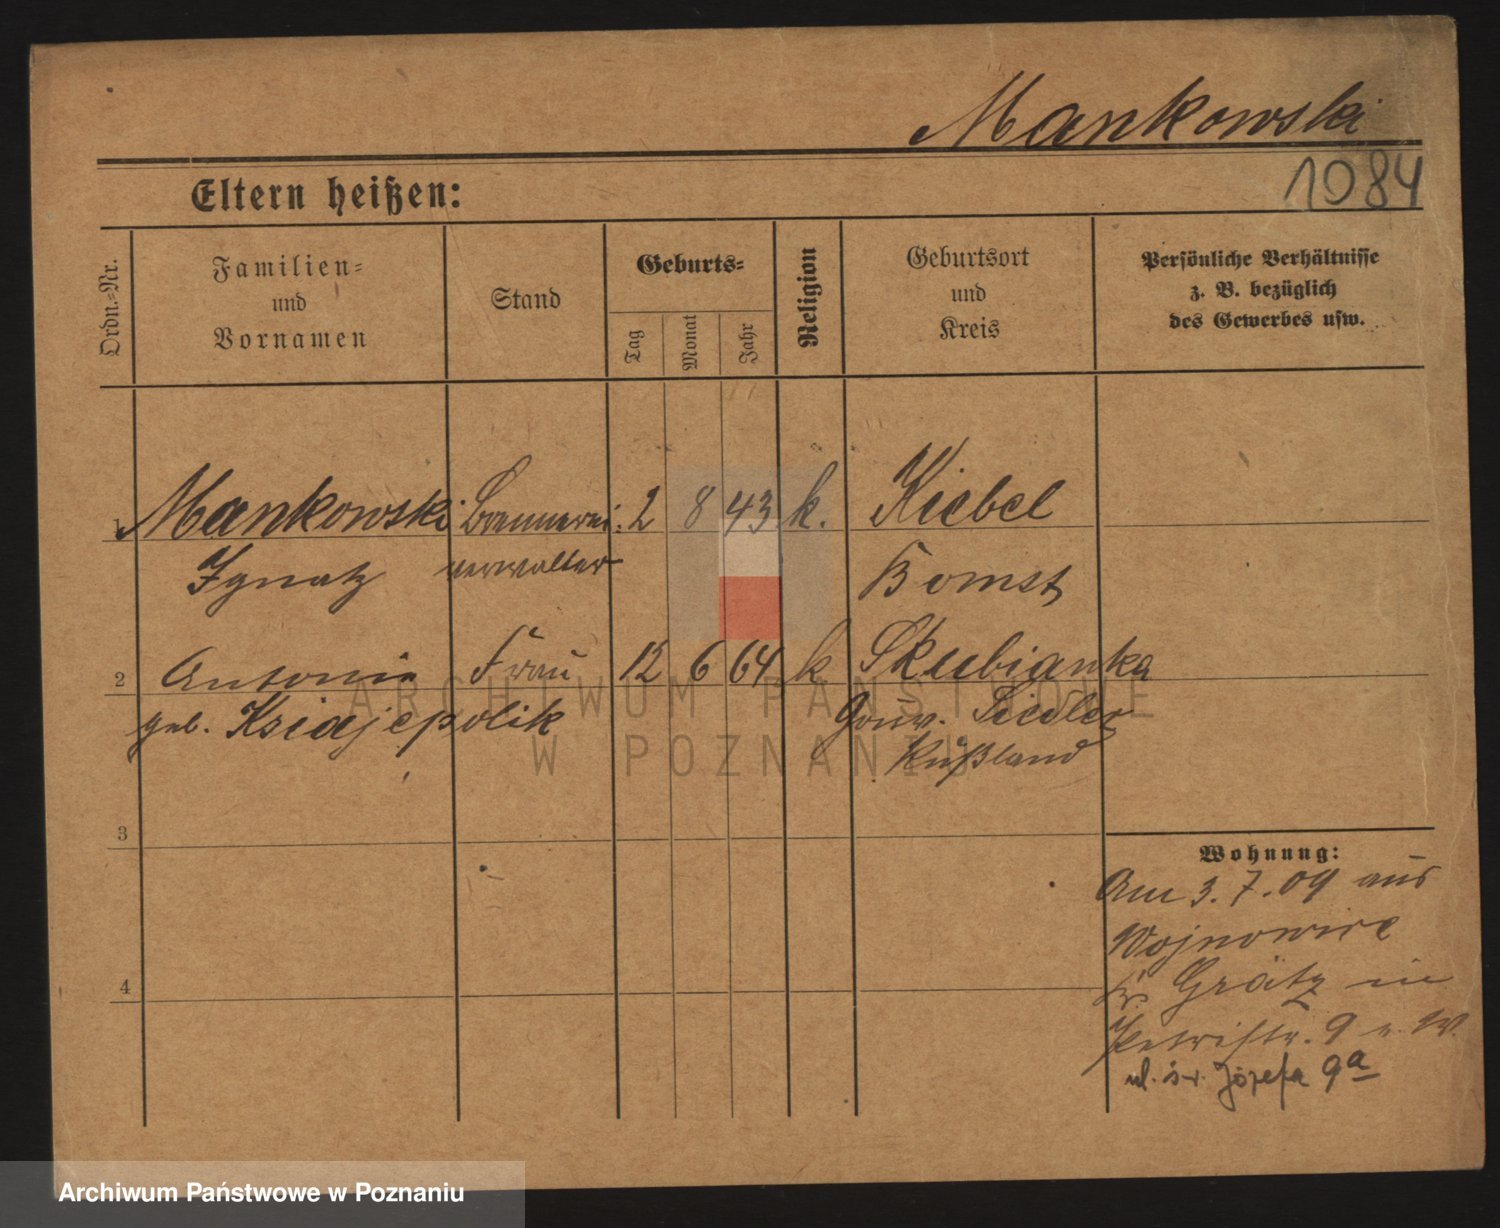 Mankowski
1084
Eltern heißen:
Ordn.-Nr.
Familien-
und
Vornamen
Stand
Geburts-
Tag
Monat
Jahr
Religion
Geburtsort
und
Kreis
Persönliche Verhältnisse
z. B. bezüglich
des Gewerbes usw.
1 Mankowski Brennerei- 2 8 43 k. Kiebel
Ignatz verwalter Bomst
2 Antonie Frau 12 6 64 k Skubianka
geb. Ksiajepolik Gouv. Siedlez
Rußland
3
Wohnung:
Am 3.7.09 aus
Wojnowice
Kr. Grätz in
4
Petristr. 9 a. W.
ul. św. Józefa 9a
ARCHIWUM PAŃSTWOWE
W POZNANIU
Archiwum Państwowe w Poznaniu